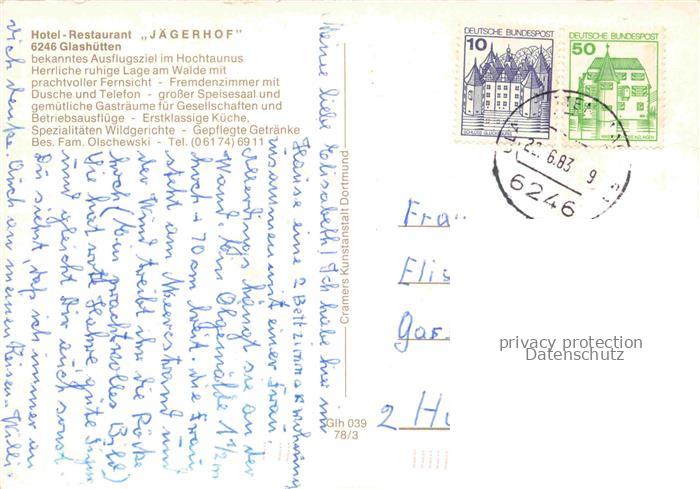 Hotel-Restaurant „JÄGERHOF"
6246 Glashütten
bekanntes Ausflugsziel im Hochtaunus
Herrliche ruhige Lage am Walde mit
prachtvoller Fernsicht - Fremdenzimmer mit
Dusche und Telefon - großer Speisesaal und
gemütliche Gasträume für Gesellschaften und
Betriebsausflüge - Erstklassige Küche,
Spezialitäten Wildgerichte - Gepflegte Getränke
Bes. Fam. Olschewski - Tel. (06174) 6911
Meine liebe Elisabeth! Ich habe hier im
Hause eine 2 Bettzimmerwohnung
zusammen mit einer Frau.
Allerdings hängt sie an der
Wand. Ein Ölgemälde 1½ m
hoch + 70 cm breit. Die Frau
steht am Meeresstrand und
der Wind treibt ihr die Röcke
hoch (ein prachtvolles Bild)
Sie hat rote Haare gute Figur
und gleicht Dir auch sonst.
Du siehst, daß ich immer an
Dich denke. Auch an meinen Reisen Willi
Cramers Kunstanstalt Dortmund
Glh 039
78/3
DEUTSCHE BUNDESPOST
10
SCHLOSS GLÜCKSBURG
DEUTSCHE BUNDESPOST
50
22.6.83 9
6246
Frau
Elis
Gar
2 H
privacy protection
Datenschutz